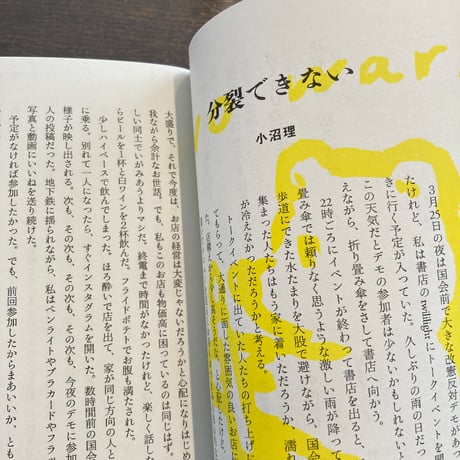 分裂できない
小沼理
3月25日の夜は国会前で大きな改憲反対デモがあっ
たけれど、私は書店のtwililightにトークイベントを聞
きに行く予定が入っていた。久しぶりの雨の日だっ
この天気だとデモの参加者は少ないかもしれない
えながら、折り畳み傘をさして書店へ向かう。
22時ごろにイベントが終わって書店を出ると、
畳み傘では頼りなく思うような激しい雨が降って
歩道にできた水たまりを大股で避けながら、国会
集まった人たちはもう家に着いただろうか、濡れ
が冷えなかっただろうかと考える。
トークイベントに出ていた人たちの打ち上げに
てもらって、大通りに面した雰囲気の良いお店に
大盛りで、それで今度は、お店の経営は大変じゃないだろうかと心配になりはじめ
我ながら余計なお世話。でも、私もこのお店も物価高に困っているのは同じはず。
しい同士でいがみあうよりマシだ。終電まで時間がなかったけれど、楽しく話しな
らビールを1杯と白ワインを2杯飲んだ。フライドポテトでお腹も満たされた。
少しハイペースで飲んでしまった。ほろ酔いで店を出て、家が同じ方向の人と
に乗る。別れて一人になったら、すぐインスタグラムを開いた。数時間前の国会
様子が映し出される。次も、その次も、その次も、その次も、今夜のデモに参加
人の投稿だった。地下鉄に揺られながら、私はペンライトやプラカードやフラッ
写真と動画にいいねを送り続けた。
予定がなければ参加したかった。でも、前回参加したからまあいいか、とも